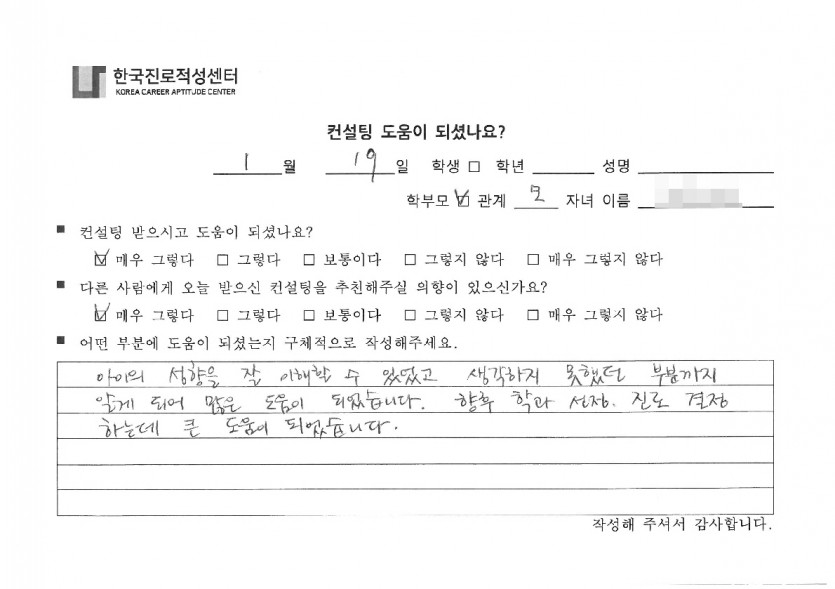 한국진로적성센터
KOREA CAREER APTITUDE CENTER
컨설팅 도움이 되셨나요?
1 월 19 일 학생 □ 학년 성명
학부모 ☑ 관계 모 자녀 이름
■ 컨설팅 받으시고 도움이 되셨나요?
☑ 매우 그렇다 □ 그렇다 □ 보통이다 □ 그렇지 않다 □ 매우 그렇지 않다
■ 다른 사람에게 오늘 받으신 컨설팅을 추천해주실 의향이 있으신가요?
☑ 매우 그렇다 □ 그렇다 □ 보통이다 □ 그렇지 않다 □ 매우 그렇지 않다
■ 어떤 부분에 도움이 되셨는지 구체적으로 작성해주세요.
아이의 성향을 잘 이해할 수 있었고 생각하지 못했던 부분까지
알게 되어 많은 도움이 되었습니다. 향후 학과 선정. 진로 결정
하는데 큰 도움이 되었습니다.
작성해 주셔서 감사합니다.